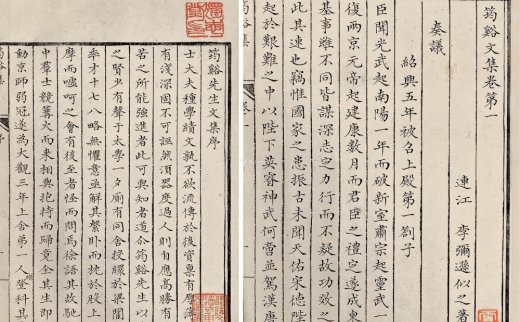 筠谿文集卷第一
連江 李彌遜似之著
奏議
紹興五年被召上殿第一劄子
臣聞光武起南陽一年而破新室肅宗起靈武一
復兩京元帝起建康數月而君臣之禮定遂成東
基事雖不同皆謀深志定力行而不疑故功效之
此其速也竊惟國家之患振古未聞天佑宋德陛
起於艱難之中以陛下英睿神武何啻並駕漢唐
筠谿先生文集序
士大夫種學績文孰不欲流傳於後資稟有厚薄
有淺深固不可誣然須器度過人則自應高勝有
若之所能強進者此可與知者道命筠谿先生以
之賢少有聲于太學一夕廁有同舍投繯於梁間
年才十七八略無懼意亟解其繫卧而挽於股上
摩而噓呵之會有後至者怪而問焉徐語其故馳
中羣士競篝火而來相與抱持而歸竟全其生即
動京師弱冠遂為大觀三年上舍第一人登科其
筠谿集 序